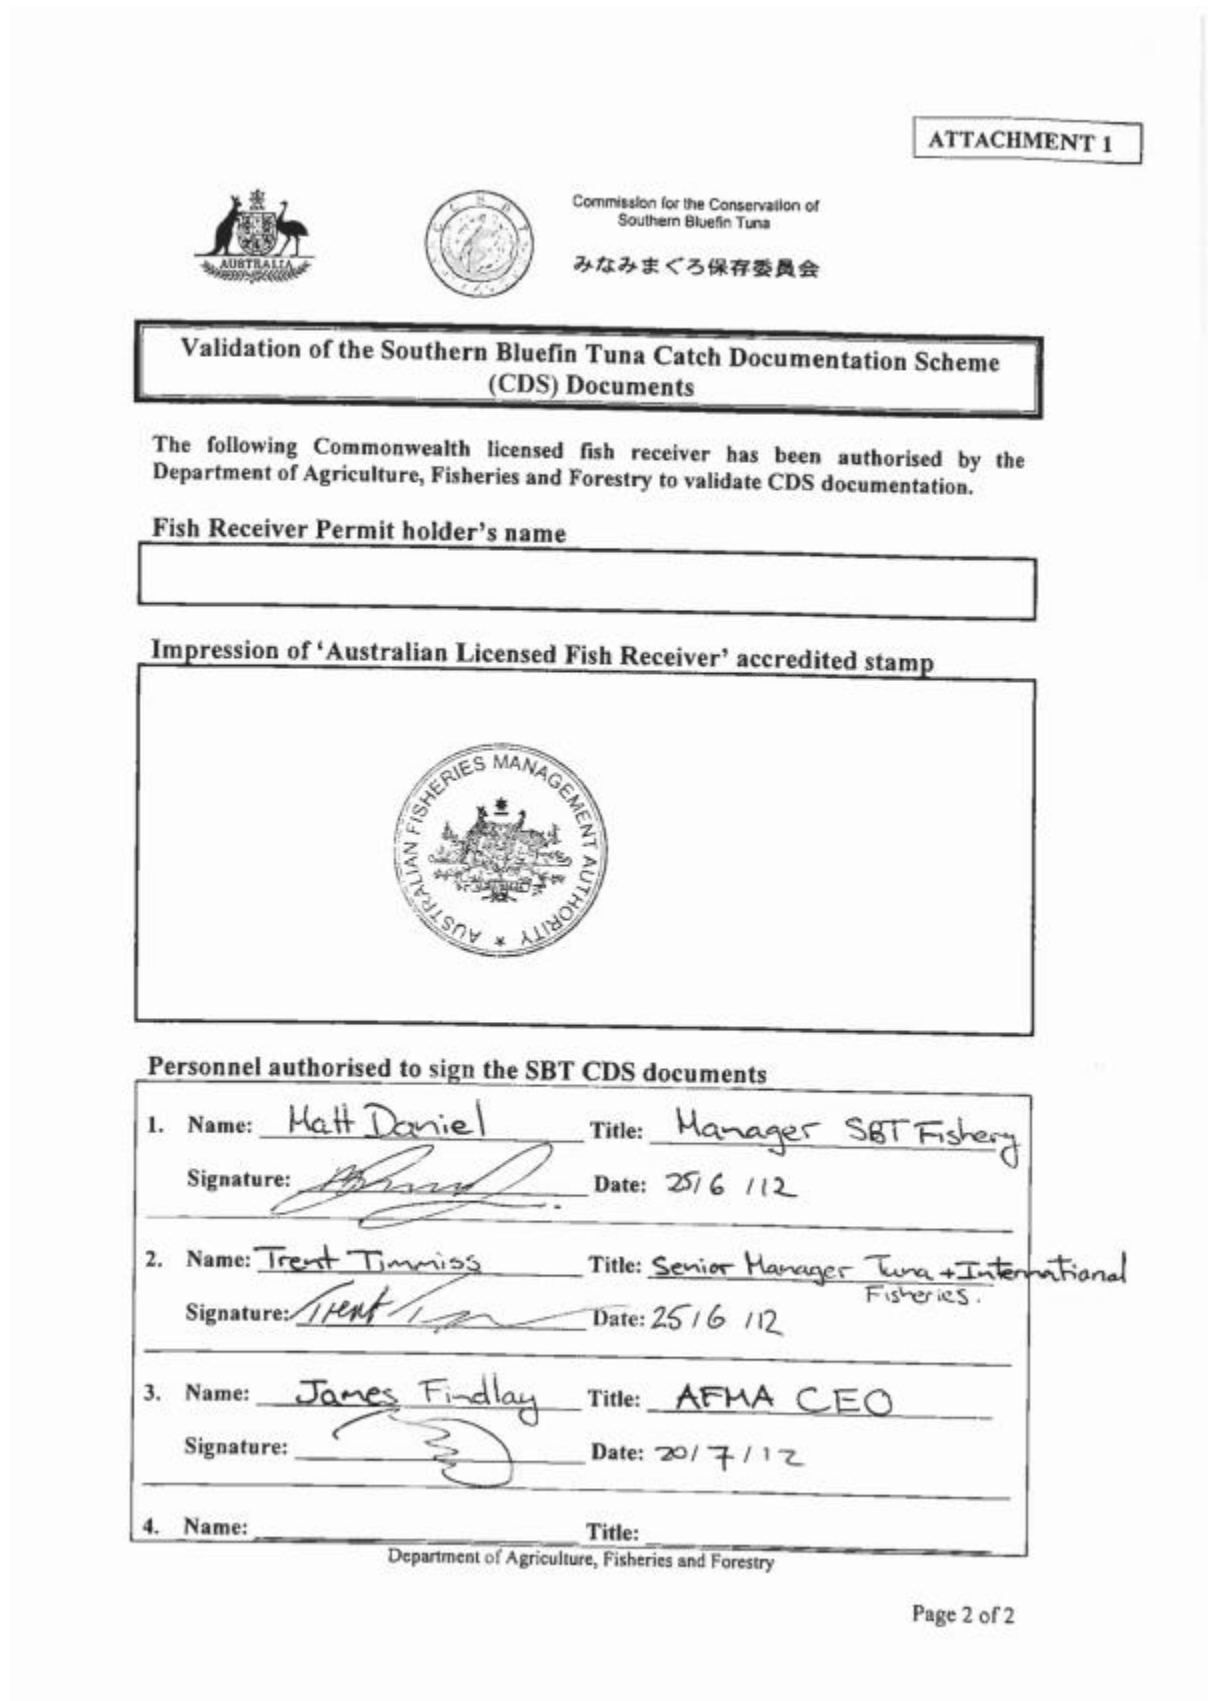 ATTACHMENT 1
AUSTRALIA
CCSBT
Commission for the Conservation of
Southern Bluefin Tuna
みなみまぐろ保存委員会
Validation of the Southern Bluefin Tuna Catch Documentation Scheme
(CDS) Documents
The following Commonwealth licensed fish receiver has been authorised by the
Department of Agriculture, Fisheries and Forestry to validate CDS documentation.
Fish Receiver Permit holder's name
Impression of 'Australian Licensed Fish Receiver' accredited stamp
AUSTRALIAN FISHERIES MANAGEMENT AUTHORITY
Personnel authorised to sign the SBT CDS documents
1. Name: Matt Daniel Title: Manager SBT Fishery
Signature: Date: 25/6/12
2. Name: Trent Timmiss Title: Senior Manager Tuna + International
Fisheries.
Signature: Trent Date: 25/6/12
3. Name: James Findlay Title: AFMA CEO
Signature: Date: 20/7/12
4. Name: Title:
Department of Agriculture, Fisheries and Forestry
Page 2 of 2